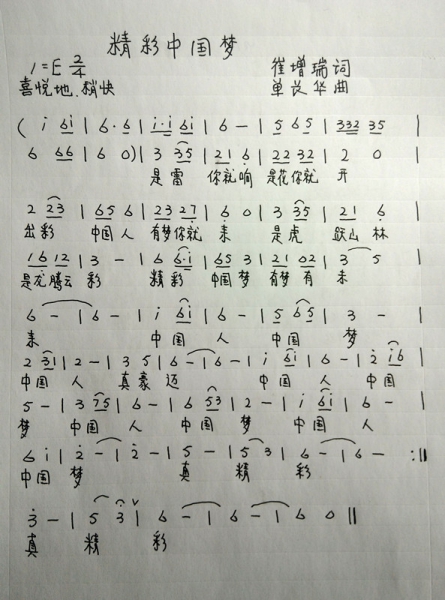 精彩中国梦
1=E 2/4 崔增瑞词
喜悦地、稍快 单长华曲
( i 6i | 6·6 | i·i 6i | 6 - | 5 65 | 332 35 |
6 66 | 6 0) | 3 35 | 21 6 | 22 32 | 2 0 |
是雷 你就响 是花你就 开
2 23 | 65 6 | 23 27 | 6 0 | 3 35 | 21 6 |
出彩 中国人 有梦你就 来 是虎 跃山 林
16 12 | 3 - | 6 6·i | 65 3 | 21 02 | 3 5 |
是龙腾云 彩 精彩 中国 梦 有梦 有 未
6 - | 6 - | i 6i | 6 - | 5 65 | 3 - |
来 中国 人 中国 梦
2 31 | 2 - | 3 5 | 6 - | 6 - | i 6i | 6 - | 2 i6 |
中国 人 真豪迈 中国 人 中国
5 - | 3 75 | 6 - | 6 53 | 2 - | i 6i | 6 - |
梦 中国 人 中国 梦 中国 人
6 i | 2 - | 2 - | 5 - | 5 3 | 6 - | 6 - :||
中国 梦 真 精 彩
3 - | 5 3 v | 6 - | 6 - | 6 0 ||
真 精 彩